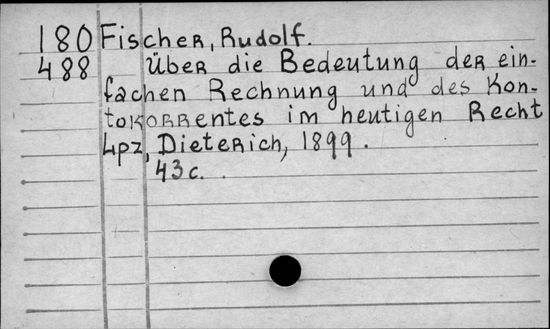 180 Fischer, Rudolf.
488 Über die Bedeutung der ein-
fachen Rechnung und des Kon-
tokorrentes im heutigen Recht
Lpz, Dieterich, 1899.
43 c.